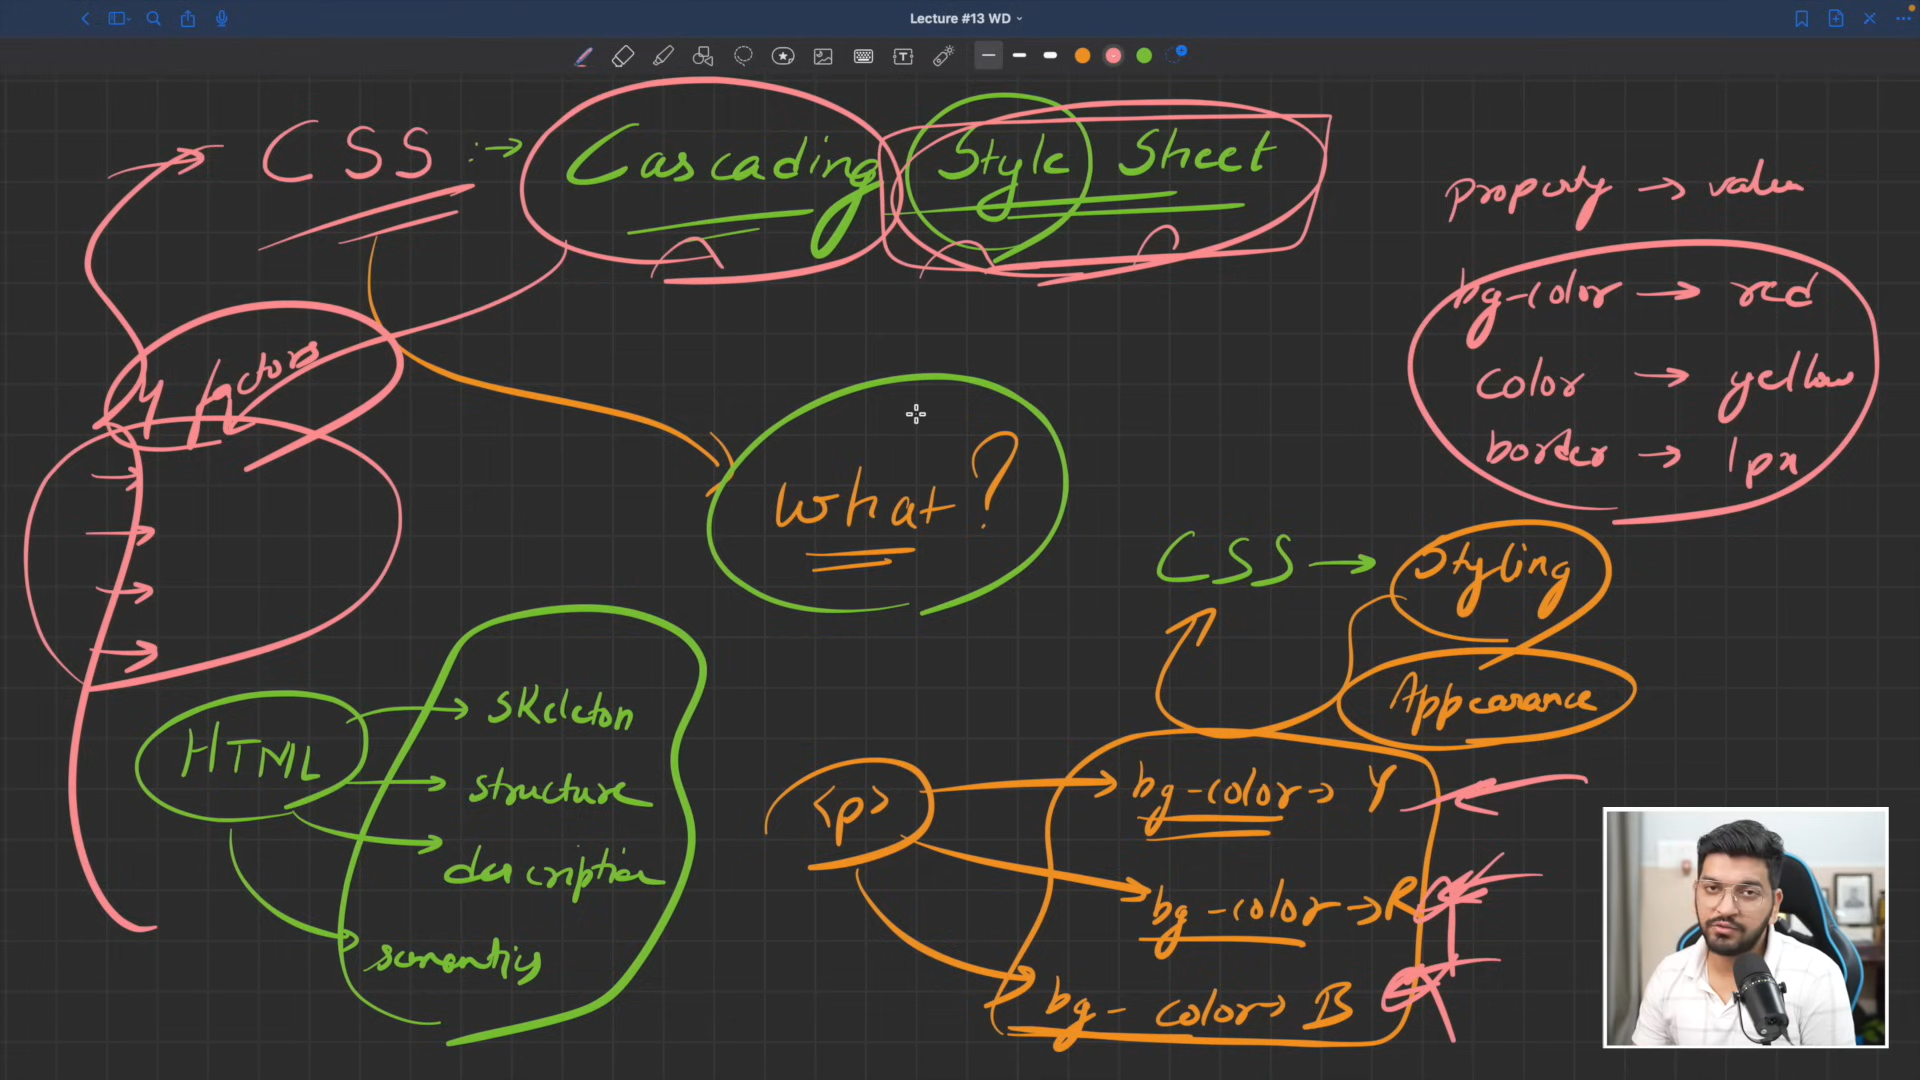 Lecture #13 WD
CSS :→ Cascading Style Sheet
property → value
bg-color → red
color → yellow
border → 1px
4 factors
what?
CSS → Styling
Appearance
HTML
skeleton
structure
description
semantics
<p>
bg-color → Y
bg-color → R
bg-color → B